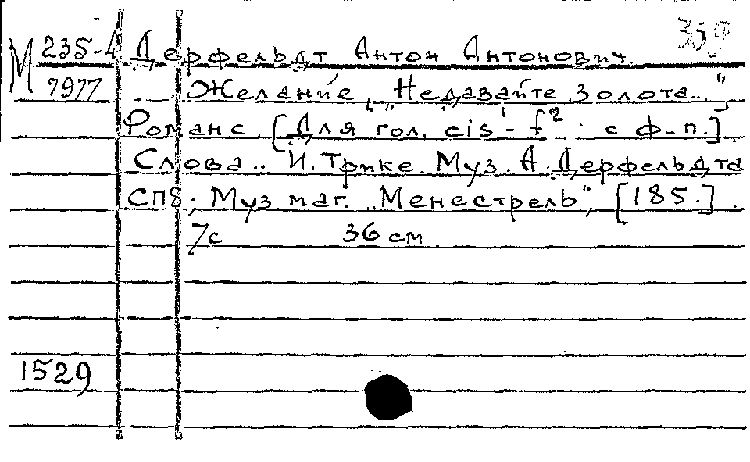 М 235-4 Дерфельдт Антон Антонович 359
7977 Желание „Недавайте золота..",
Романс [Для гол. cis¹- f² : с ф-п.]
Слова.. И. Трике. Муз. А. Дерфельдта
СПб; Муз маг. „Менестрель", [185.].
7с 36 см
1529